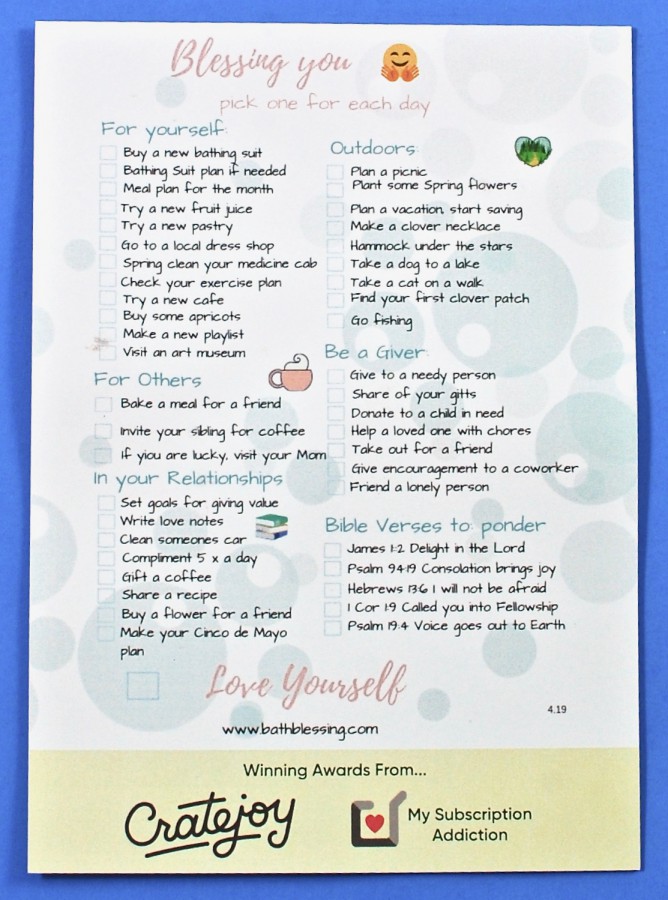 Blessing you
pick one for each day
For yourself:
Buy a new bathing suit
Bathing Suit plan if needed
Meal plan for the month
Try a new fruit juice
Try a new pastry
Go to a local dress shop
Spring clean your medicine cab
Check your exercise plan
Try a new cafe
Buy some apricots
Make a new playlist
Visit an art museum
For Others
Bake a meal for a friend
Invite your sibling for coffee
If yiou are lucky, visit your Mom
In your Relationships
Set goals for giving value
Write love notes
Clean someones car
Compliment 5 x a day
Gift a coffee
Share a recipe
Buy a flower for a friend
Make your Cinco de Mayo
plan
Outdoors:
Plan a picnic
Plant some Spring flowers
Plan a vacation, start saving
Make a clover necklace
Hammock under the stars
Take a dog to a lake
Take a cat on a walk
Find your first clover patch
Go fishing
Be a Giver:
Give to a needy person
Share of your gifts
Donate to a child in need
Help a loved one with chores
Take out for a friend
Give encouragement to a coworker
Friend a lonely person
Bible Verses to: ponder
James 1:2 Delight in the Lord
Psalm 94:19 Consolation brings joy
Hebrews 13:6 I will not be afraid
1 Cor 1:9 Called you into Fellowship
Psalm 19:4 Voice goes out to Earth
Love Yourself
4.19
www.bathblessing.com
Winning Awards From...
Cratejoy
My Subscription
Addiction